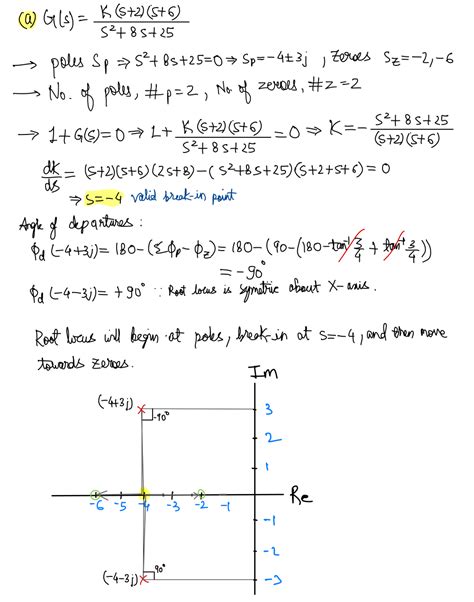 (a) G(s) = K(s+2)(s+6) / s²+8s+25
→ poles Sp ⇒ s²+8s+25=0 ⇒ Sp=-4±3j , zeroes Sz=-2,-6
→ No. of poles, #p=2, No. of zeroes, #z=2
→ 1+G(s)=0 ⇒ 1+ K(s+2)(s+6) / s²+8s+25 =0 ⇒ K=- s²+8s+25 / (s+2)(s+6)
dK/ds = (s+2)(s+6)(2s+8)-(s²+8s+25)(s+2+s+6) = 0
⇒ s=-4 valid break-in point
Angle of departures :
ϕd (-4+3j) = 180-(Σϕp-ϕz) = 180-(90-(180-tan⁻¹ 3/4 + tan⁻¹ 3/4))
= -90°
ϕd (-4-3j) = +90° ∵ Root locus is symetric about X-axis.
Root locus will begin at poles, break-in at s=-4, and then move
towards zeroes.
Im
(-4+3j)
3
-90°
2
1
Re
-6 -5 -4 -3 -2 -1
-1
-2
90°
(-4-3j)
-3